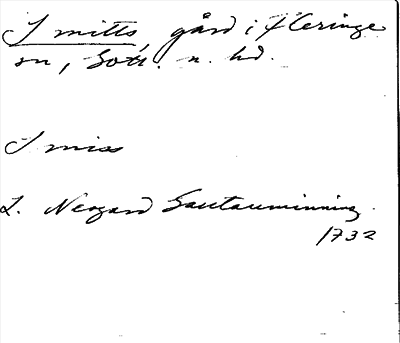 Smitts, gård i Fleringe
sn, Gotl. n. hd.
Smiss
L. Neogard Gautauminning.
1732